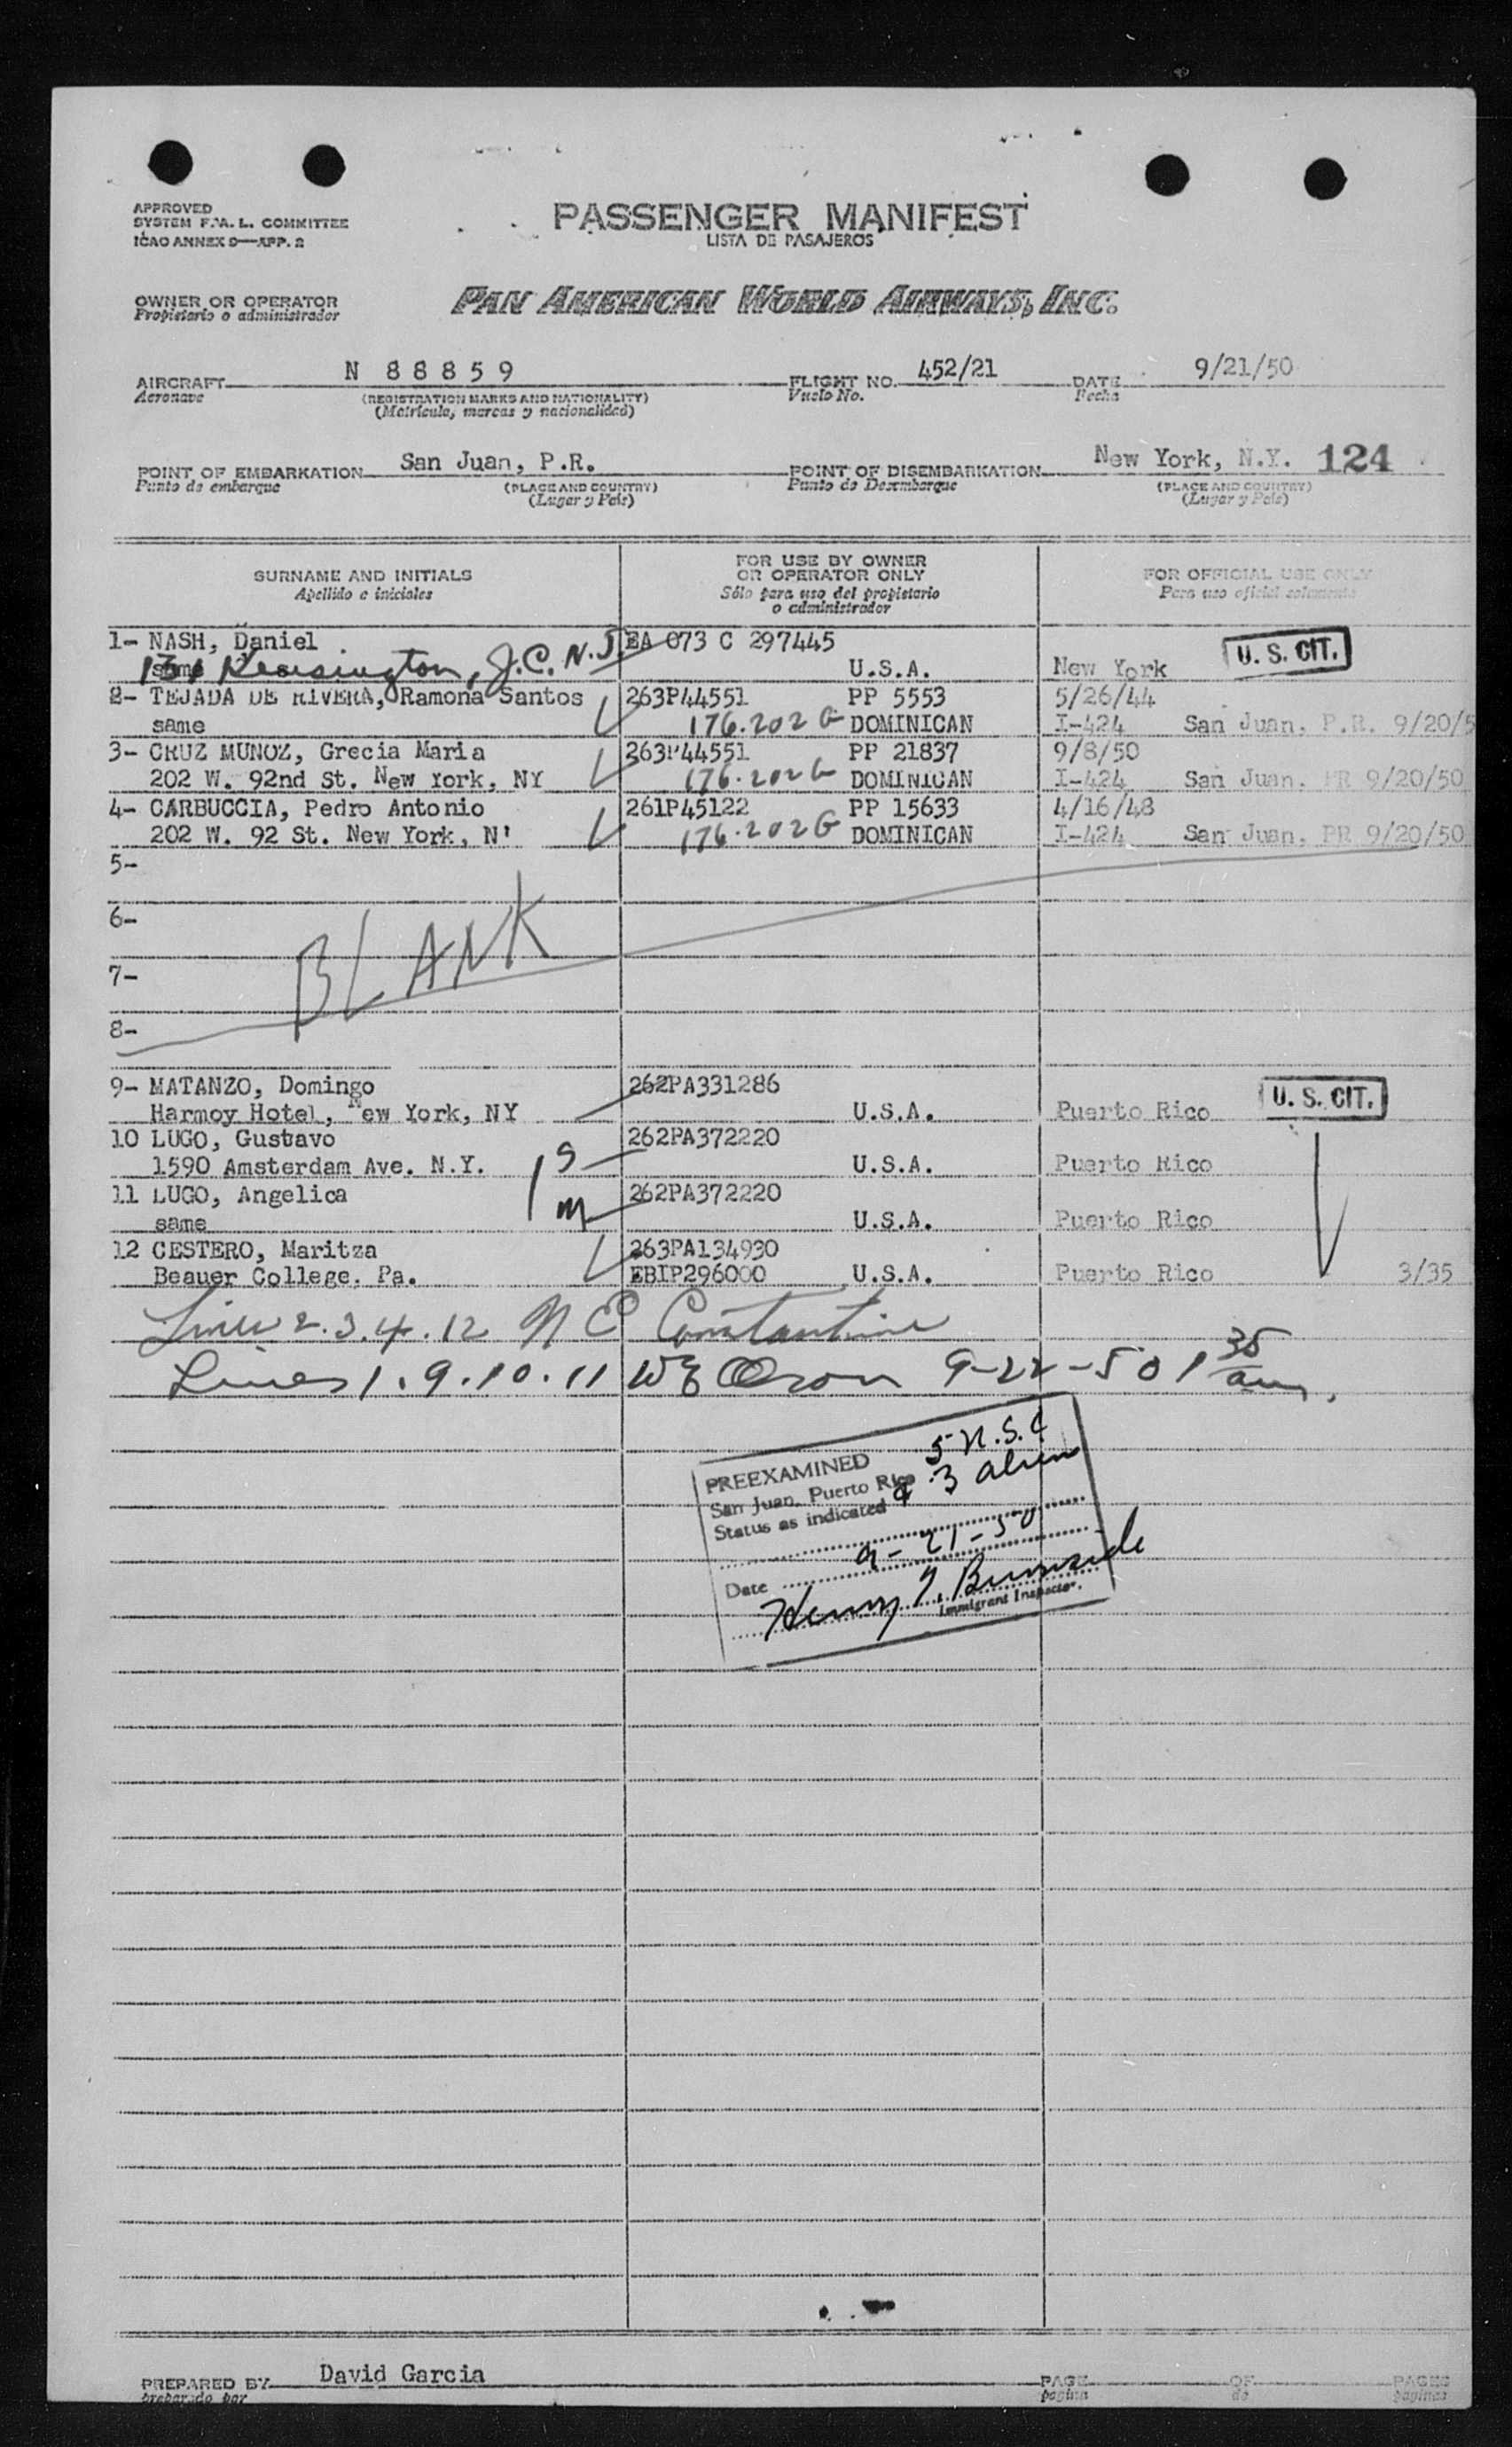 APPROVED
SYSTEM F.A.L. COMMITTEE
ICAO ANNEX 9—APP. 2
PASSENGER MANIFEST
LISTA DE PASAJEROS
OWNER OR OPERATOR
Propietario o administrador
PAN AMERICAN WORLD AIRWAYS, INC.
AIRCRAFT N 88859 FLIGHT NO. 452/21 DATE 9/21/50
Aeronave (REGISTRATION MARKS AND NATIONALITY) Vuelo No. Fecha
(Matricula, marcas y nacionalidad)
POINT OF EMBARKATION San Juan, P.R. POINT OF DISEMBARKATION New York, N.Y. 124
Punto de embarque (PLACE AND COUNTRY) Punto de Desembarque (PLACE AND COUNTRY)
(Lugar y Pais) (Lugar y Pais)
SURNAME AND INITIALS FOR USE BY OWNER OR OPERATOR ONLY FOR OFFICIAL USE ONLY
Apellido e iniciales Sólo para uso del propietario o administrador Para uso oficial solamente
1- NASH, Daniel EA 073 C 297445
same Kensington, J.C. N.J. U.S.A. New York U. S. CIT.
2- TEJADA DE RIVERA, Ramona Santos 263P44551 PP 5553 5/26/44
same 176.202 G DOMINICAN I-424 San Juan, P.R. 9/20/5
3- CRUZ MUNOZ, Grecia Maria 263P44551 PP 21837 9/8/50
202 W. 92nd St. New York, NY 176.202 G DOMINICAN I-424 San Juan. PR 9/20/50
4- CARBUCCIA, Pedro Antonio 261P45122 PP 15633 4/16/48
202 W. 92 St. New York, N' 176.202 G DOMINICAN I-424 San Juan. PR 9/20/50
5-
6-
BLANK
7-
8-
9- MATANZO, Domingo 262PA331286
Harmoy Hotel, New York, NY U.S.A. Puerto Rico U. S. CIT.
10 LUGO, Gustavo 262PA372220
1590 Amsterdam Ave. N.Y. S U.S.A. Puerto Rico
11 LUGO, Angelica 262PA372220
same M U.S.A. Puerto Rico
12 CESTERO, Maritza 263PA134930
Beauer College. Pa. EBIP296000 U.S.A. Puerto Rico 3/35
Lines 2.3.4.12 N E Constantine
Lines 1.9.10.11 9-22-50 1 35 am.
PREEXAMINED 5 U.S.C
San Juan, Puerto Rico
Status as indicated & 3 alien
Date 9-21-50
Henry Burnside
Immigrant Inspector.
PREPARED BY David Garcia PAGE OF PAGES
preparado por pagina de paginas